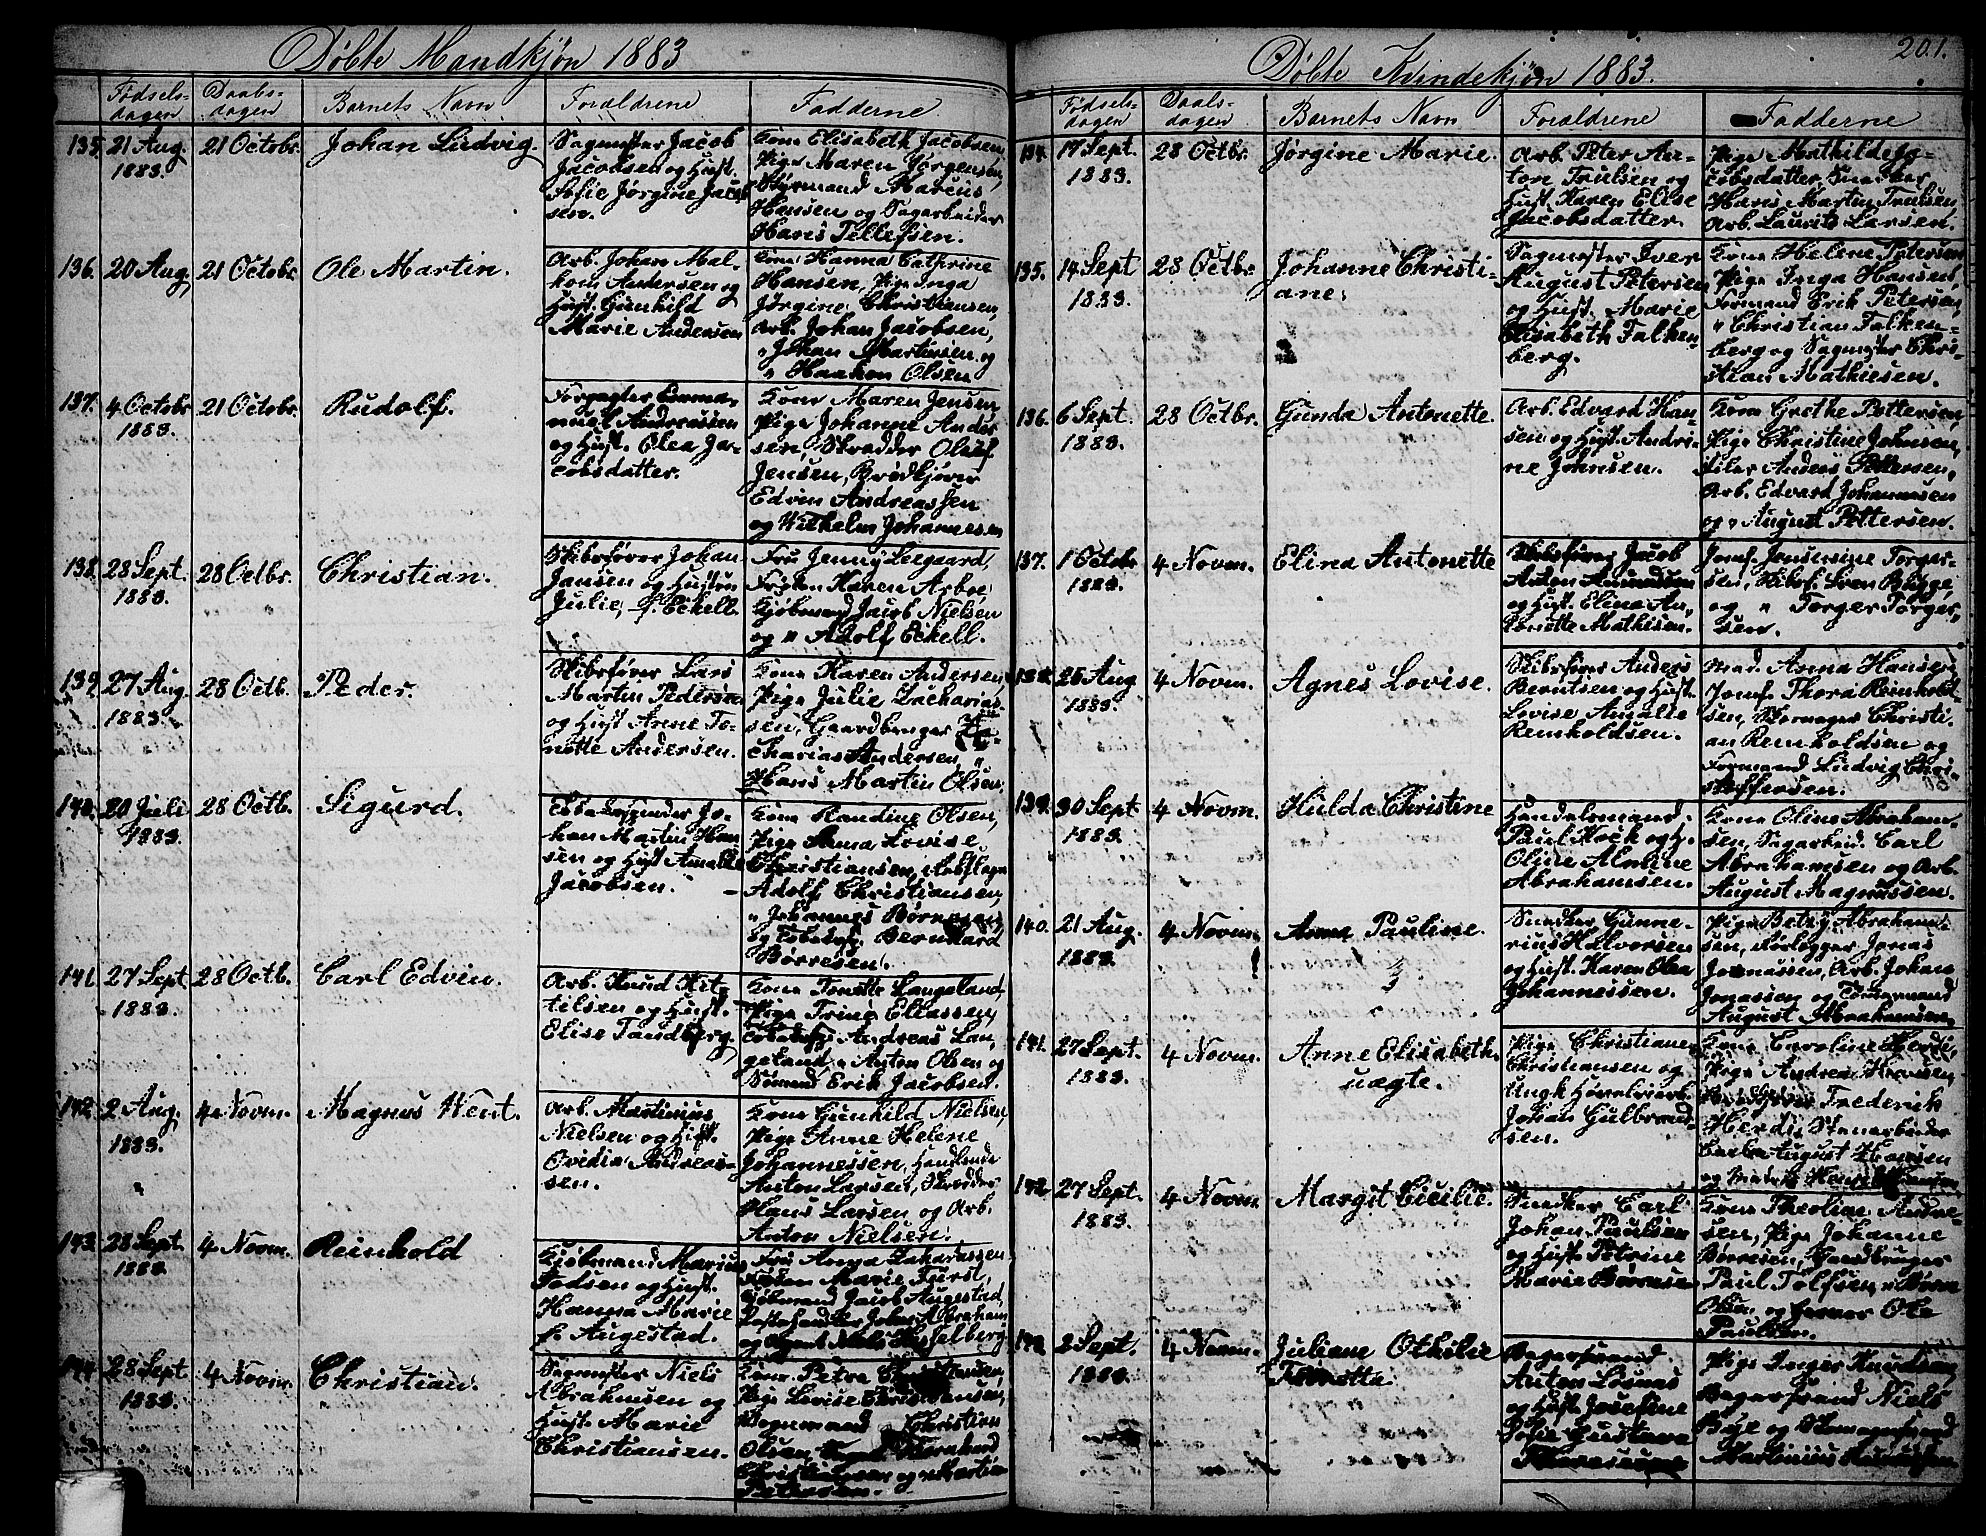 Døbte Mandkjøn 1883
Fødsels-
dagen
Daabs-
dagen
Barnets Navn
Forældrene
Fadderne
135. 21 Aug. 1883. 21 Octobr. Johan Ludvig.
Sagmester Jacob
Jacobsen og Hust.
Sofie Jørgine Jacob
sen.
Kone Elisabeth Jacobsen,
Pige Maren Jørgensen,
Styrmand Marcus
Hansen og Sagarbeider
Hans Tellefsen.
136. 20 Aug. 21 Octobr. Ole Martin.
Arb. Johan Mal-
kom Andersen og
Hust. Gunhild
Marie Andersen
Kone Hanna Cathrine
Hansen, Pige Inga
Jørgine Christiansen,
Arb. Johan Jacobsen,
" Johan Martinsen og
" Haakon Olsen
137. 4 Octobr 1883. 21 Octobr. Rudolf.
Forgagter Emma-
nuel Andreassen
og Hust. Olea Ja-
cobsdatter.
Kone Maren Jensen
Pige Johanne Ander
sen, Skrædder Oluf
Jensen, Brødkjører
Edvin Andreassen
og Wilhelm Johannesen
138. 28 Sept. 1883. 28 Octbr. Christian.
Skibsfører Johan
Jansen og Hustru
Julie, f. Eckell.
Fru Jenny Leegaard,
Frøken Karen Arboe
Kjøbmand Jacob Nielsen
og " Adolf Eckell.
139. 27 Aug. 1883. 28 Octb. Peder.
Skibsfører Lars
Martin Pedersen
og Hust Anne To-
nette Andersen.
Kone Karen Andersen,
Pige Julie Zacharias-
sen, Gaardbruger Za-
charias Andersen, "
Hans Martin Olsen.
140. 20 Juli 1883. 28 Octb. Sigurd.
Tobakspinder Jo-
han Martin Han
sen og Hust Amalie
Jacobsen.
Kone Randine Olsen,
Pige Anna Lovise
Christiansen,
Adolf Christiansen,
" Johannes Børresen,
og Bernhard
Børresen.
141. 27 Sept 1883. 28 Octb. Carl Edvin.
Arb. Knud Kit-
tilsen og Hust.
Elise Tandberg.
Kone Tonette Langeland,
Pige Trine Eliassen,
Andreas Lan-
geland, " Anton Olsen og
Sømand Erik Jacobsen.
142. 2 Aug. 1883. 4 Novm. Magnus Went.
Arb. Martinius
Nielsen og Hust.
Ovidia Andreas-
sen.
Kone Gunhild Nielsen,
Pige Anne Helene
Johannessen, Handlende
Anton Larsen, Skrædder
Hans Larsen og Arb.
Anton Nielsen.
143. 28 Sept. 1883. 4 Novm. Reinhold
Kjøbmand Marius
Todsen og Hust.
Hanna Marie
f. Augestad.
Fru Anna Zakariassen
Frøken Marie Fürst,
Kjøbmand Jacob Augestad,
John Abraham
og Agent Niels Hesselberg
144. 28 Sept 1883. 4 Novm. Christian.
Sagmester Niels
Abrahamsen og
Hust. Marie
Christiansen.
Kone Petra
Pige Lovise Christiansen,
Christian
Olsen,
Christiansen og Martin
Petersen.
Døbte Kvindekjøn 1883.
201.
Fødsels-
dagen
Daabs-
dagen
Barnets Navn
Forældrene
Fadderne
134. 17 Sept. 1883. 28 Octbr. Jørgine Marie.
Arb. Peter An-
ton Trulsen og
Hust. Karen Elise
Jacobsdatter.
Pige Mathilde Ja-
cobsdatter, Snedker
Hans Martin Trulsen,
Arb. Laurits Larsen.
135. 14 Sept 1883. 28 Octbr. Johanne Christi-
ane.
Sagmester Iver
August Petersen
og Hust. Marie
Elisabeth Falken-
berg.
Kone Helene Petersen
Pige Inga Hansen,
Formand Erik Petersen,
" Christian Falken-
berg og Sagmester Chri-
stian Mathiesen.
136. 6 Sept. 1883. 28 Octbr. Gunda Antonette
Arb. Edvard Han-
sen og Hust. Andri-
ne Johnsen.
Kone Grethe Pettersen,
Pige Christine Johnsen,
Filer Anders Pettersen,
Arb. Edvard Johannesen
og " August Pettersen.
137. 1 Octobr 1883. 4 Novm. Elina Antonette
Skibsfører Jacob
Anton Amundsen
og Hust. Elina An-
tonette Mathisen.
Jomf. Jensersine Torger-
sen, Skibsf. Sven Bugge,
og " Torger Torger-
sen.
138. 25 Aug 1883. 4 Novm. Agnes Lovise.
Skibsfører Anders
Berntsen og Hust
Lovise Amalie
Reinholdsen.
Mad. Anna Hansen
Jomf. Thora Reinhold
sen, Christi-
an Reinholdsen og
Formand Ludvig Chri-
stoffersen.
139. 30 Sept 1883. 4 Novm. Hulda Christine
Handelsmand
Paul Hock og H.
Oline Almine
Abrahamsen.
Kone Oline Abraham-
sen, Sagarbeid. Carl
Abrahamsen og Arb.
August Magnussen.
140. 21 Aug. 1883. 4 Novm. Anna Pauline.
Snedker Gunne-
rius Halvorsen
og Hust. Karen Olea
Johannessen.
Pige Betzy Abraham-
sen, Jonas
Jonassen, Arb. Johan
Jonassen og Tømmermand
August Abrahamsen.
141. 27 Sept. 1883. 4 Novm. Anne Elisabeth.
uægte.
Pige Christiane
Christiansen og
Ungk
Johan Gulbrand-
sen.
Kone Caroline Herdi,
Pige Andrea Hansen
Frederik
Herdi, Stenarbeider
August Hansen
142. 27 Sept. 1883. 4 Novm. Margit Cicilie.
Snedker Carl
Johan Paulsen
og Hust. Petrine
Marie Børresen
Kone Theoline Andre-
sen, Pige Johanne
Børresen, Gaardbruger
Paul Tolfsen,
Olsen og Ole
Paulsen.
143. 2 Sept. 1883. 4 Novm. Juliane Othilie
Tonette.
Bagersvend
Anton Lisnas
og Hust Josefine
Sofie Gustava
Pige Inger Knudsen
Bagersvend Niels
Boje og
Martinius